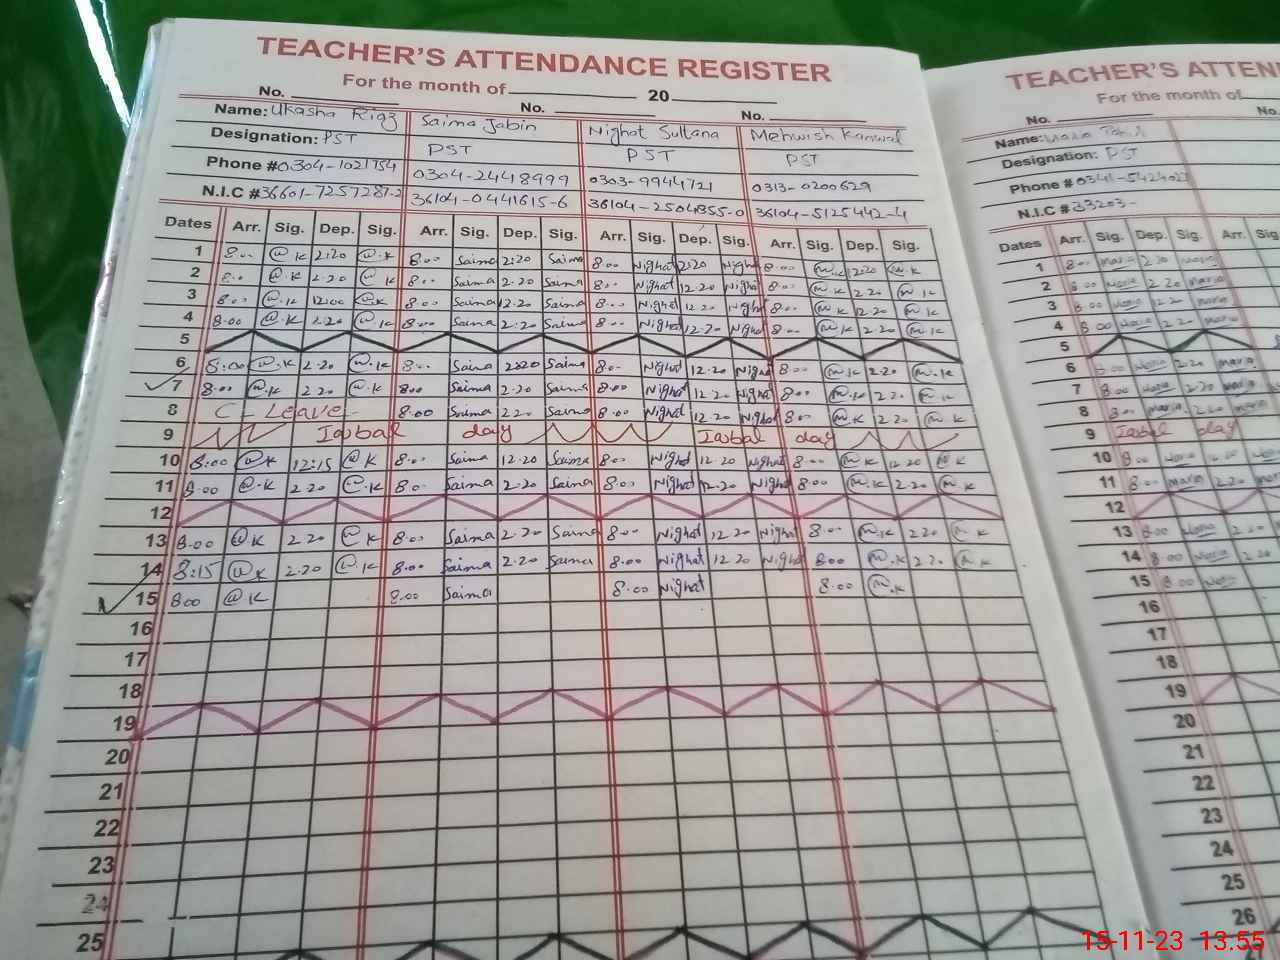 TEACHER'S ATTENDANCE REGISTER
For the month of 20
No. No. No.
Name: Ukasha Riaz Saima Jabin Nighat Sultana Mehwish Kanwal
Designation: PST PST PST PST
Phone # 0304-1021754 0304-2448999 0303-9944721 0313-0200629
N.I.C # 36601-7257287-2 36104-0441615-6 36104-2504855-0 36104-5125442-4
Dates Arr. Sig. Dep. Sig. Arr. Sig. Dep. Sig. Arr. Sig. Dep. Sig. Arr. Sig. Dep. Sig.
1 8.00 @.K 2:20 @.K 8.00 Saima 2:20 Saima 8.00 Nighat 2:20 Nighat 8.00 m.K 12:20 m.K
2 8.00 @.K 2.20 @.K 8.00 Saima 2.20 Saima 8.00 Nighat 12.20 Nighat 8.00 m.K 2.20 m.K
3 8.00 @.K 12:00 @.K 8.00 Saima 12.20 Saima 8.00 Nighat 12.20 Nighat 8.00 m.K 12.20 m.K
4 8.00 @.K 2.20 @.K 8.00 Saima 2:20 Saima 8.00 Nighat 12.20 Nighat 8.00 m.K 2.20 m.K
5
6 8:00 @.K 2.20 @.K 8.00 Saima 2:20 Saima 8.00 Nighat 12.20 Nighat 8.00 m.K 2.20 m.K
7 8.00 @.K 2.20 @.K 8.00 Saima 2.20 Saima 8.00 Nighat 12.20 Nighat 8.00 m.K 2.20 m.K
8 C- Leave 8.00 Saima 2.20 Saima 8.00 Nighat 12.20 Nighat 8.00 m.K 2.20 m.K
9 Iqbal day Iqbal day
10 8:00 @.K 12:15 @.K 8.00 Saima 12.20 Saima 8.00 Nighat 12.20 Nighat 8.00 m.K 12.20 m.K
11 8.00 @.K 2.20 @.K 8.00 Saima 2.20 Saima 8.00 Nighat 12.20 Nighat 8.00 m.K 2.20 m.K
12
13 8.00 @.K 2.20 @.K 8.00 Saima 2.20 Saima 8.00 Nighat 12.20 Nighat 8.00 m.K 2.20 m.K
14 8:15 @.K 2.20 @.K 8.00 Saima 2.20 Saima 8.00 Nighat 12.20 Nighat 8.00 m.K 2.20 m.K
15 8.00 @.K 8.00 Saima 8.00 Nighat 8.00 m.K
16
17
18
19
20
21
22
23
24
25
TEACHER'S ATTEN
For the month of
No. No.
Name: Maria
Designation: PST
Phone # 0341-
N.I.C # 33203-
Dates Arr. Sig. Dep. Sig. Arr. Sig
1 8.00 Maria 2.20 Maria
2 8.00 Maria 2.20 Maria
3 8.00 Maria 12.20 Maria
4 8.00 Maria 2.20 Maria
5
6 8.00 Maria 2.20 Maria
7 8.00 Maria 2.20 Maria
8 8.00 Maria 2.20 Maria
9 Iqbal day
10 8.00 Maria
11 8.00 Maria 2.20 Maria
12
13 8.00 Maria 2.20
14 8.00 Maria 2.20
15 8.00 Maria
16
17
18
19
20
21
22
23
24
25
26
15-11-23 13:55